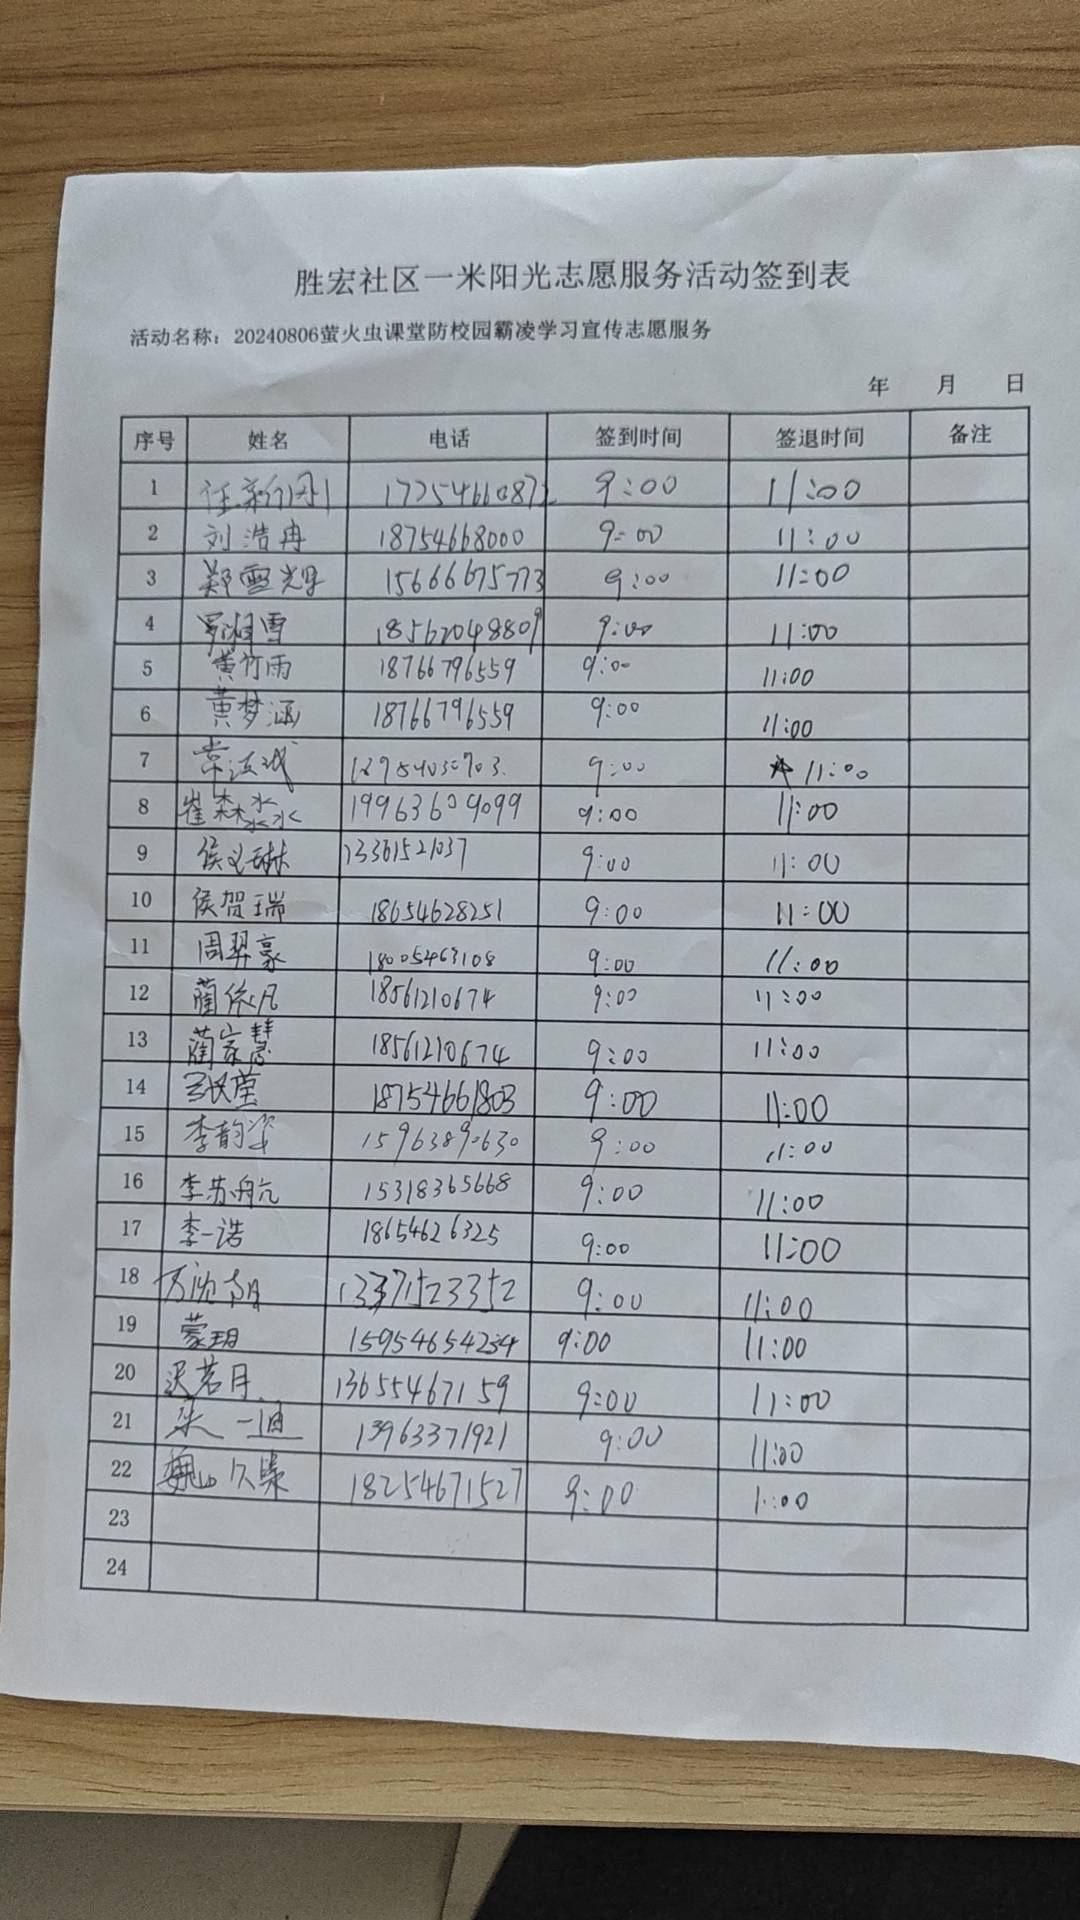 胜宏社区一米阳光志愿服务活动签到表
活动名称：20240806萤火虫课堂防校园霸凌学习宣传志愿服务
年 月 日
序号 姓名 电话 签到时间 签退时间 备注
1 9:00 11:00
2 刘浩冉 18754668000 9:00 11:00
3 郑雪 15666675773 9:00 11:00
4 罗湘雪 18562048809 9:00 11:00
5 黄竹雨 18766796559 9:00 11:00
6 黄梦涵 18766796559 9:00 11:00
7 9:00 11:00
8 崔森淼 19963609099 9:00 11:00
9 侯义琳 13361521037 9:00 11:00
10 侯贺瑞 18654628251 9:00 11:00
11 周羿豪 18005463108 9:00 11:00
12 蔺依凡 18561210674 9:00 11:00
13 蔺家慧 18561210674 9:00 11:00
14 18754661803 9:00 11:00
15 李韵 9:00 11:00
16 李苏航 15318365668 9:00 11:00
17 李一诺 18654626325 9:00 11:00
18 13371523352 9:00 11:00
19 蒙玥 15954654234 9:00 11:00
20 若月 13655467159 9:00 11:00
21 一迪 13963371921 9:00 11:00
22 魏 18254671527 9:00 1:00
23
24